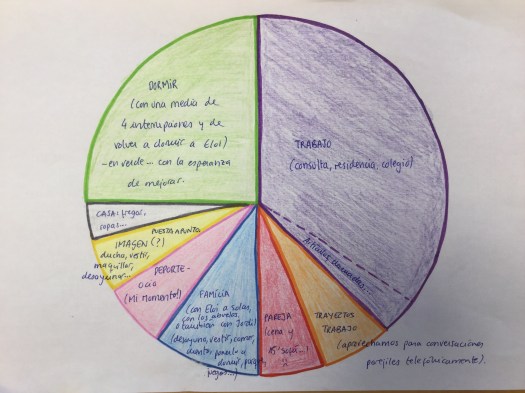 DORMIR
(con una media de
4 interrupciones y de
volver a dormir a Eloi)
-en verde... con la esperanza
de mejorar.
TRABAJO
(consulta, residencia, colegio)
CASA: fregar,
ropas...
PUESTA A PUNTO
IMAGEN (?)
ducha, vestir,
maquillar,
desayunar...
DEPORTE-
OCIO
(Mi momento!)
FAMILIA
(con Eloi a solas,
con los abuelos,
o también con Jordi)
(desayuno, vestir, comer,
dormir, parque,
juegos...)
PAREJA
(cena y
15' sofá...)
TRAYECTOS
TRABAJO
(aprovechamos para conversaciones
parejiles telefónicamente).